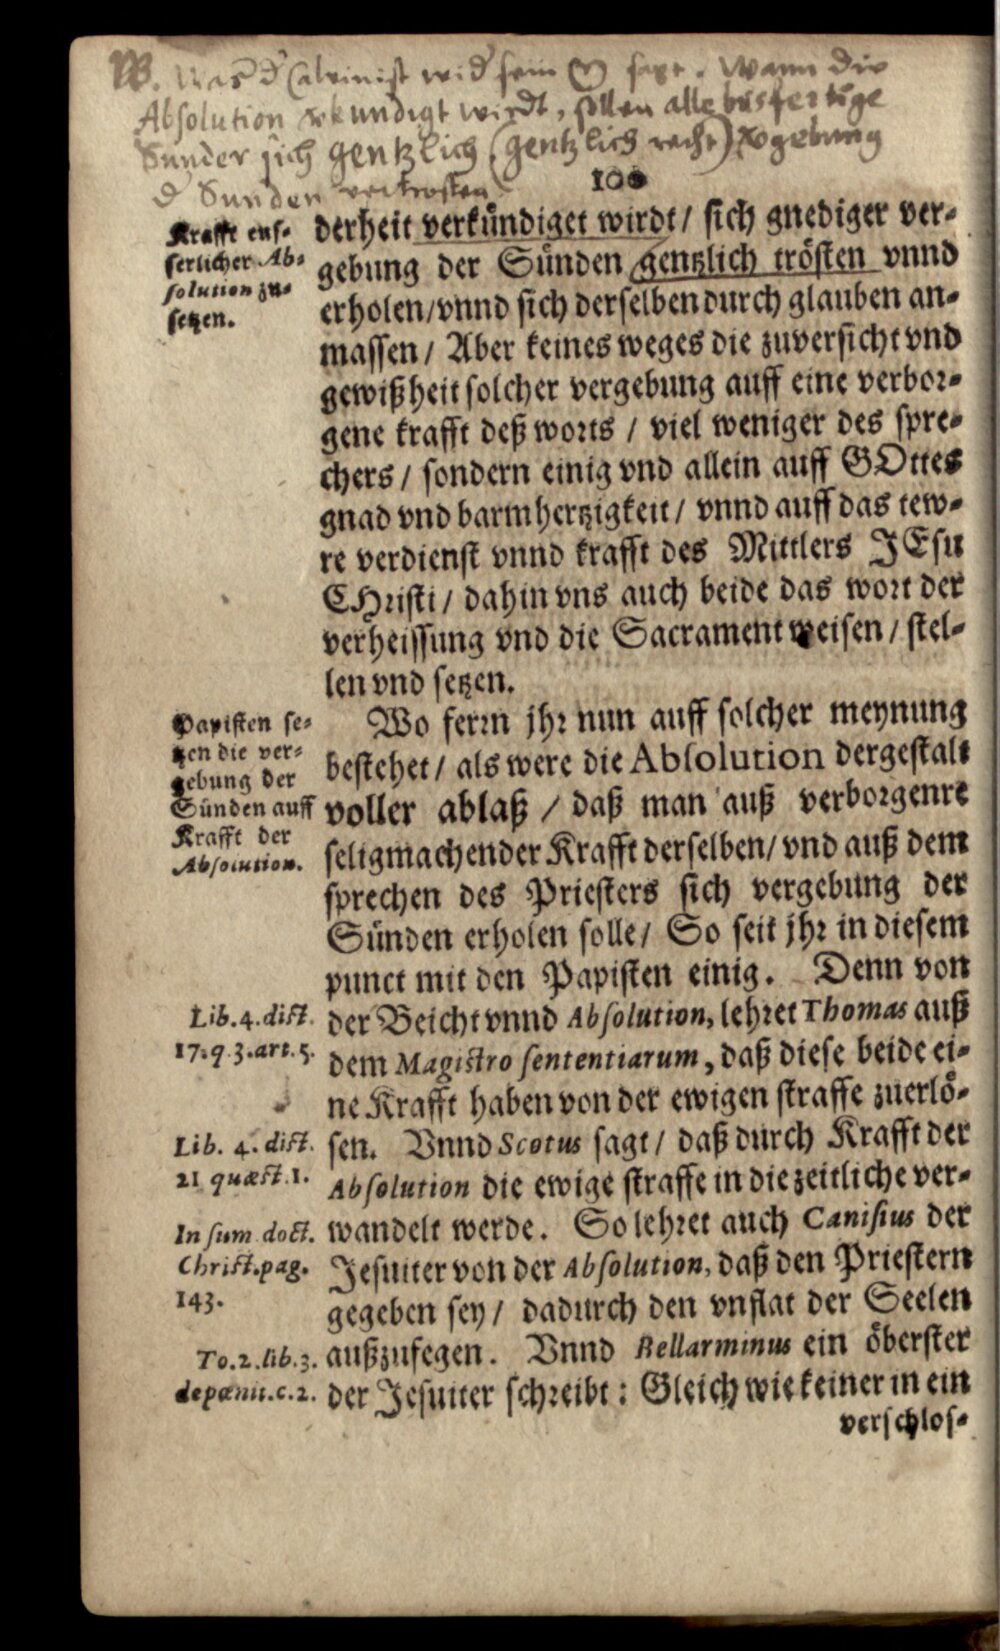 NB. Was d Calvinist wid sein sagt. Wann die
Absolution vkundigt wirdt, sollen alle busfertige
Sunder sich gentzlich (gentzlich recht) Vgebung
d Sunden vertrosten
100
Krafft eus-
serlicher Ab-
solution zu-
setzen.
derheit verkündiget wirdt / sich gnediger ver-
gebung der Sünden gentzlich trösten vnnd
erholen / vnnd sich derselben durch glauben an-
massen / Aber keines weges die zuversicht vnd
gewißheit solcher vergebung auff eine verbor-
gene krafft deß worts / viel weniger des spre-
chers / sondern einig vnd allein auff GOttes
gnad vnd barmhertzigkeit / vnnd auff das tew-
re verdienst vnnd krafft des Mittlers JEsu
CHristi / dahin vns auch beide das wort der
verheissung vnd die Sacrament weisen / stel-
len vnd setzen.
Papisten se-
tzen die ver-
gebung der
Sünden auff
Krafft der
Absolution.
Wo ferrn jhr nun auff solcher meynung
bestehet / als were die Absolution dergestalt
voller ablaß / daß man auß verborgenre
seligmachender Krafft derselben / vnd auß dem
sprechen des Priesters sich vergebung der
Sünden erholen solle / So seit jhr in diesem
punct mit den Papisten einig. Denn von
Lib. 4. dist.
17. q. 3. art. 5.
der Beicht vnnd Absolution, lehret Thomas auß
dem Magistro sententiarum, daß diese beide ei-
ne Krafft haben von der ewigen straffe zuerlö-
Lib. 4. dist.
21 quæst. 1.
sen. Vnnd Scotus sagt / daß durch Krafft der
Absolution die ewige straffe in die zeitliche ver-
In sum. doct.
Christ. pag.
143.
wandelt werde. So lehret auch Canisius der
Jesuiter von der Absolution, daß den Priestern
gegeben sey / dadurch den vnflat der Seelen
To. 2. lib. 3.
de pœnit. c. 2.
außzufegen. Vnnd Bellarminus ein öberster
der Jesuiter schreibt : Gleich wie keiner in ein
verschlos-